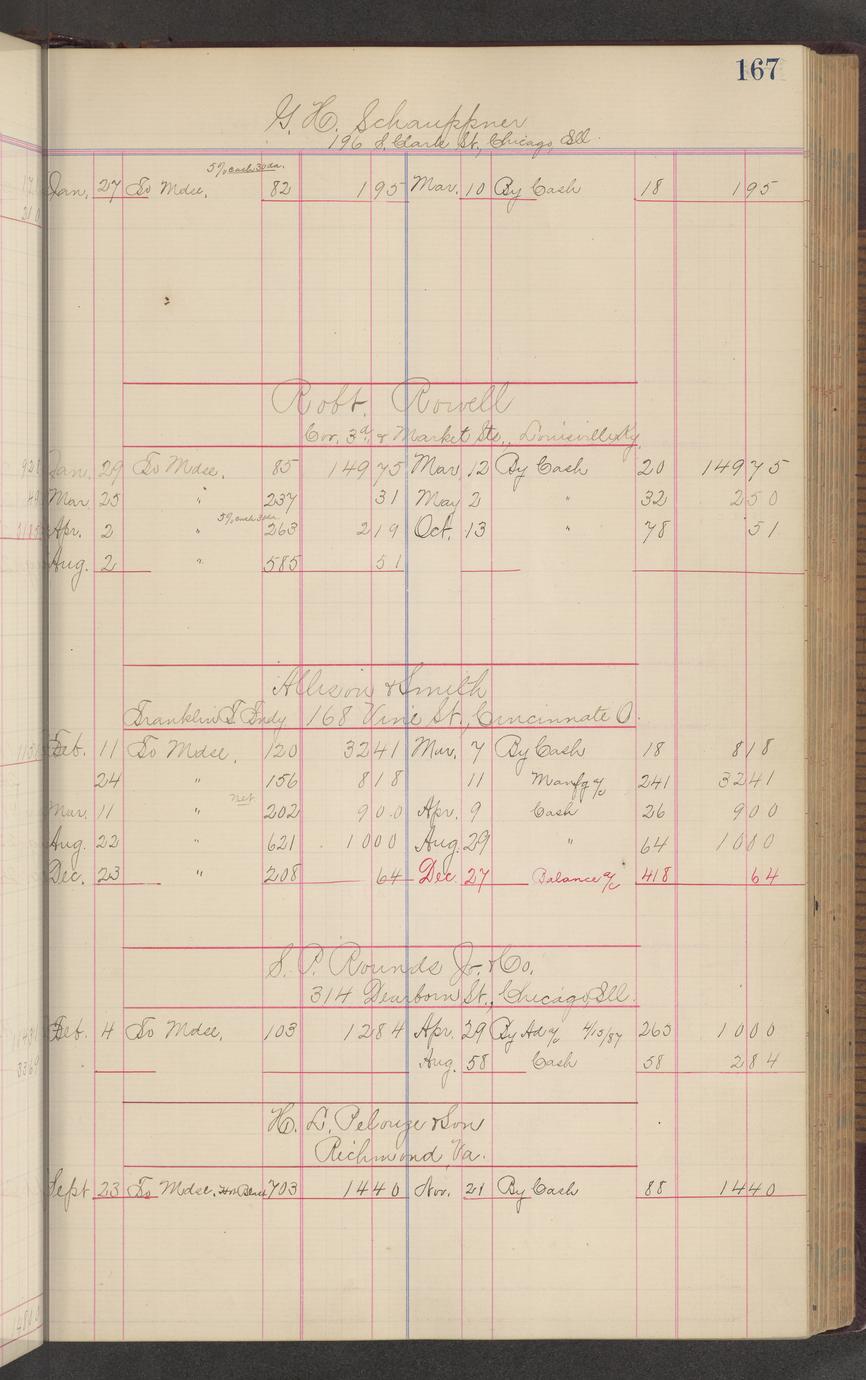 167
G. H. Schauppner
196 S. Clark St., Chicago, Ill.
5% cash 30 da.
Jan. 27 To Mdse. 82 1 95 Mar. 10 By Cash 18 1 95
Robt. Rowell
Cor. 3d & Market Sts., Louisville Ky.
Jan. 29 To Mdse. 85 149 75 Mar. 12 By Cash 20 149 75
Mar 25 " 237 31 May 2 " 32 2 50
5% cash 30 da.
Apr. 2 " 263 2 19 Oct. 13 " 78 51
Aug. 2 " 585 51
Allison & Smith
Franklin T. Fndy 168 Vine St., Cincinnate O.
Feb. 11 To Mdse. 120 32 41 Mar. 7 By Cash 18 8 18
24 " 156 8 18 11 Manfg a/c 241 32 41
net
Mar. 11 " 202 9 00 Apr. 9 Cash 26 9 00
Aug. 22 " 621 10 00 Aug. 29 " 64 10 00
Dec. 23 " 208 64 Dec. 27 Balance a/c 418 64
S. P. Rounds Jr. & Co.
314 Dearborn St., Chicago, Ill.
Feb. 4 To Mdse. 103 12 84 Apr. 29 By Ad a/c 4/15/87 265 10 00
Aug. 58 Cash 58 2 84
H. L. Pelouze & Son
Richmond, Va.
Sept 23 To Mdse. 703 14 40 Nov. 21 By Cash 88 14 40